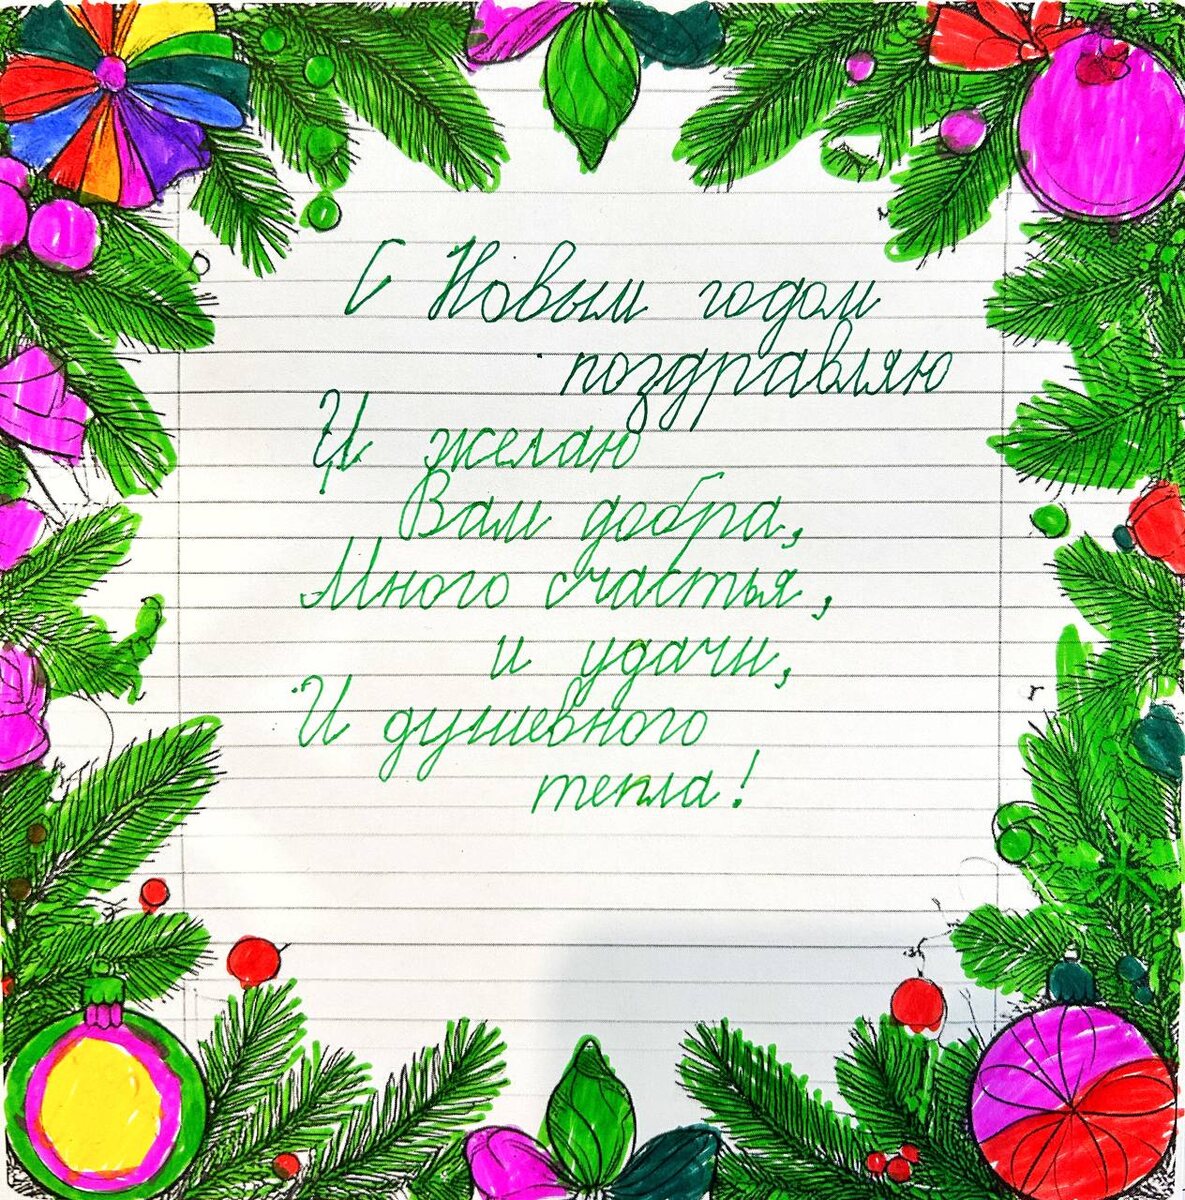 С Новым годом
поздравляю
И желаю
Вам добра,
Много счастья,
и удачи,
И душевного
тепла!